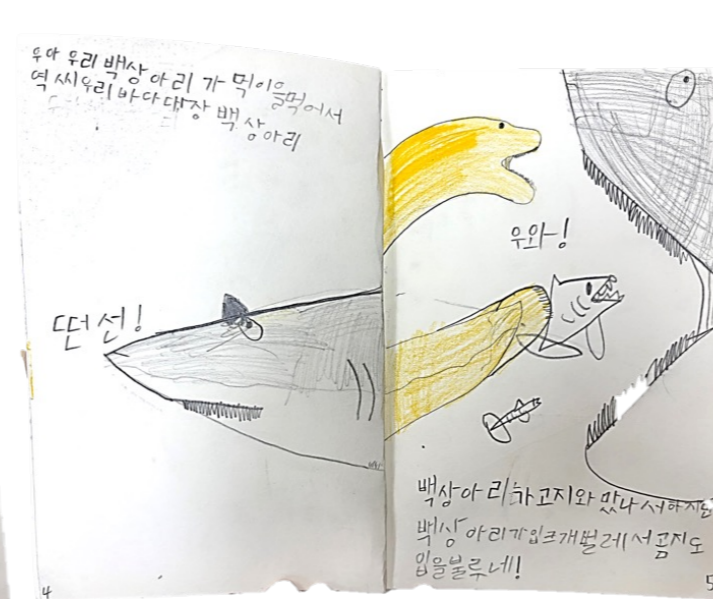 우아 우리 백상아리가 먹이을먹어서
역씨우리바다대장 백상아리
떤선!
우와!
백상아리하고지와 맜나서하지만
백상아리가입크개벌레서곰지도
입을불루네!
4
5